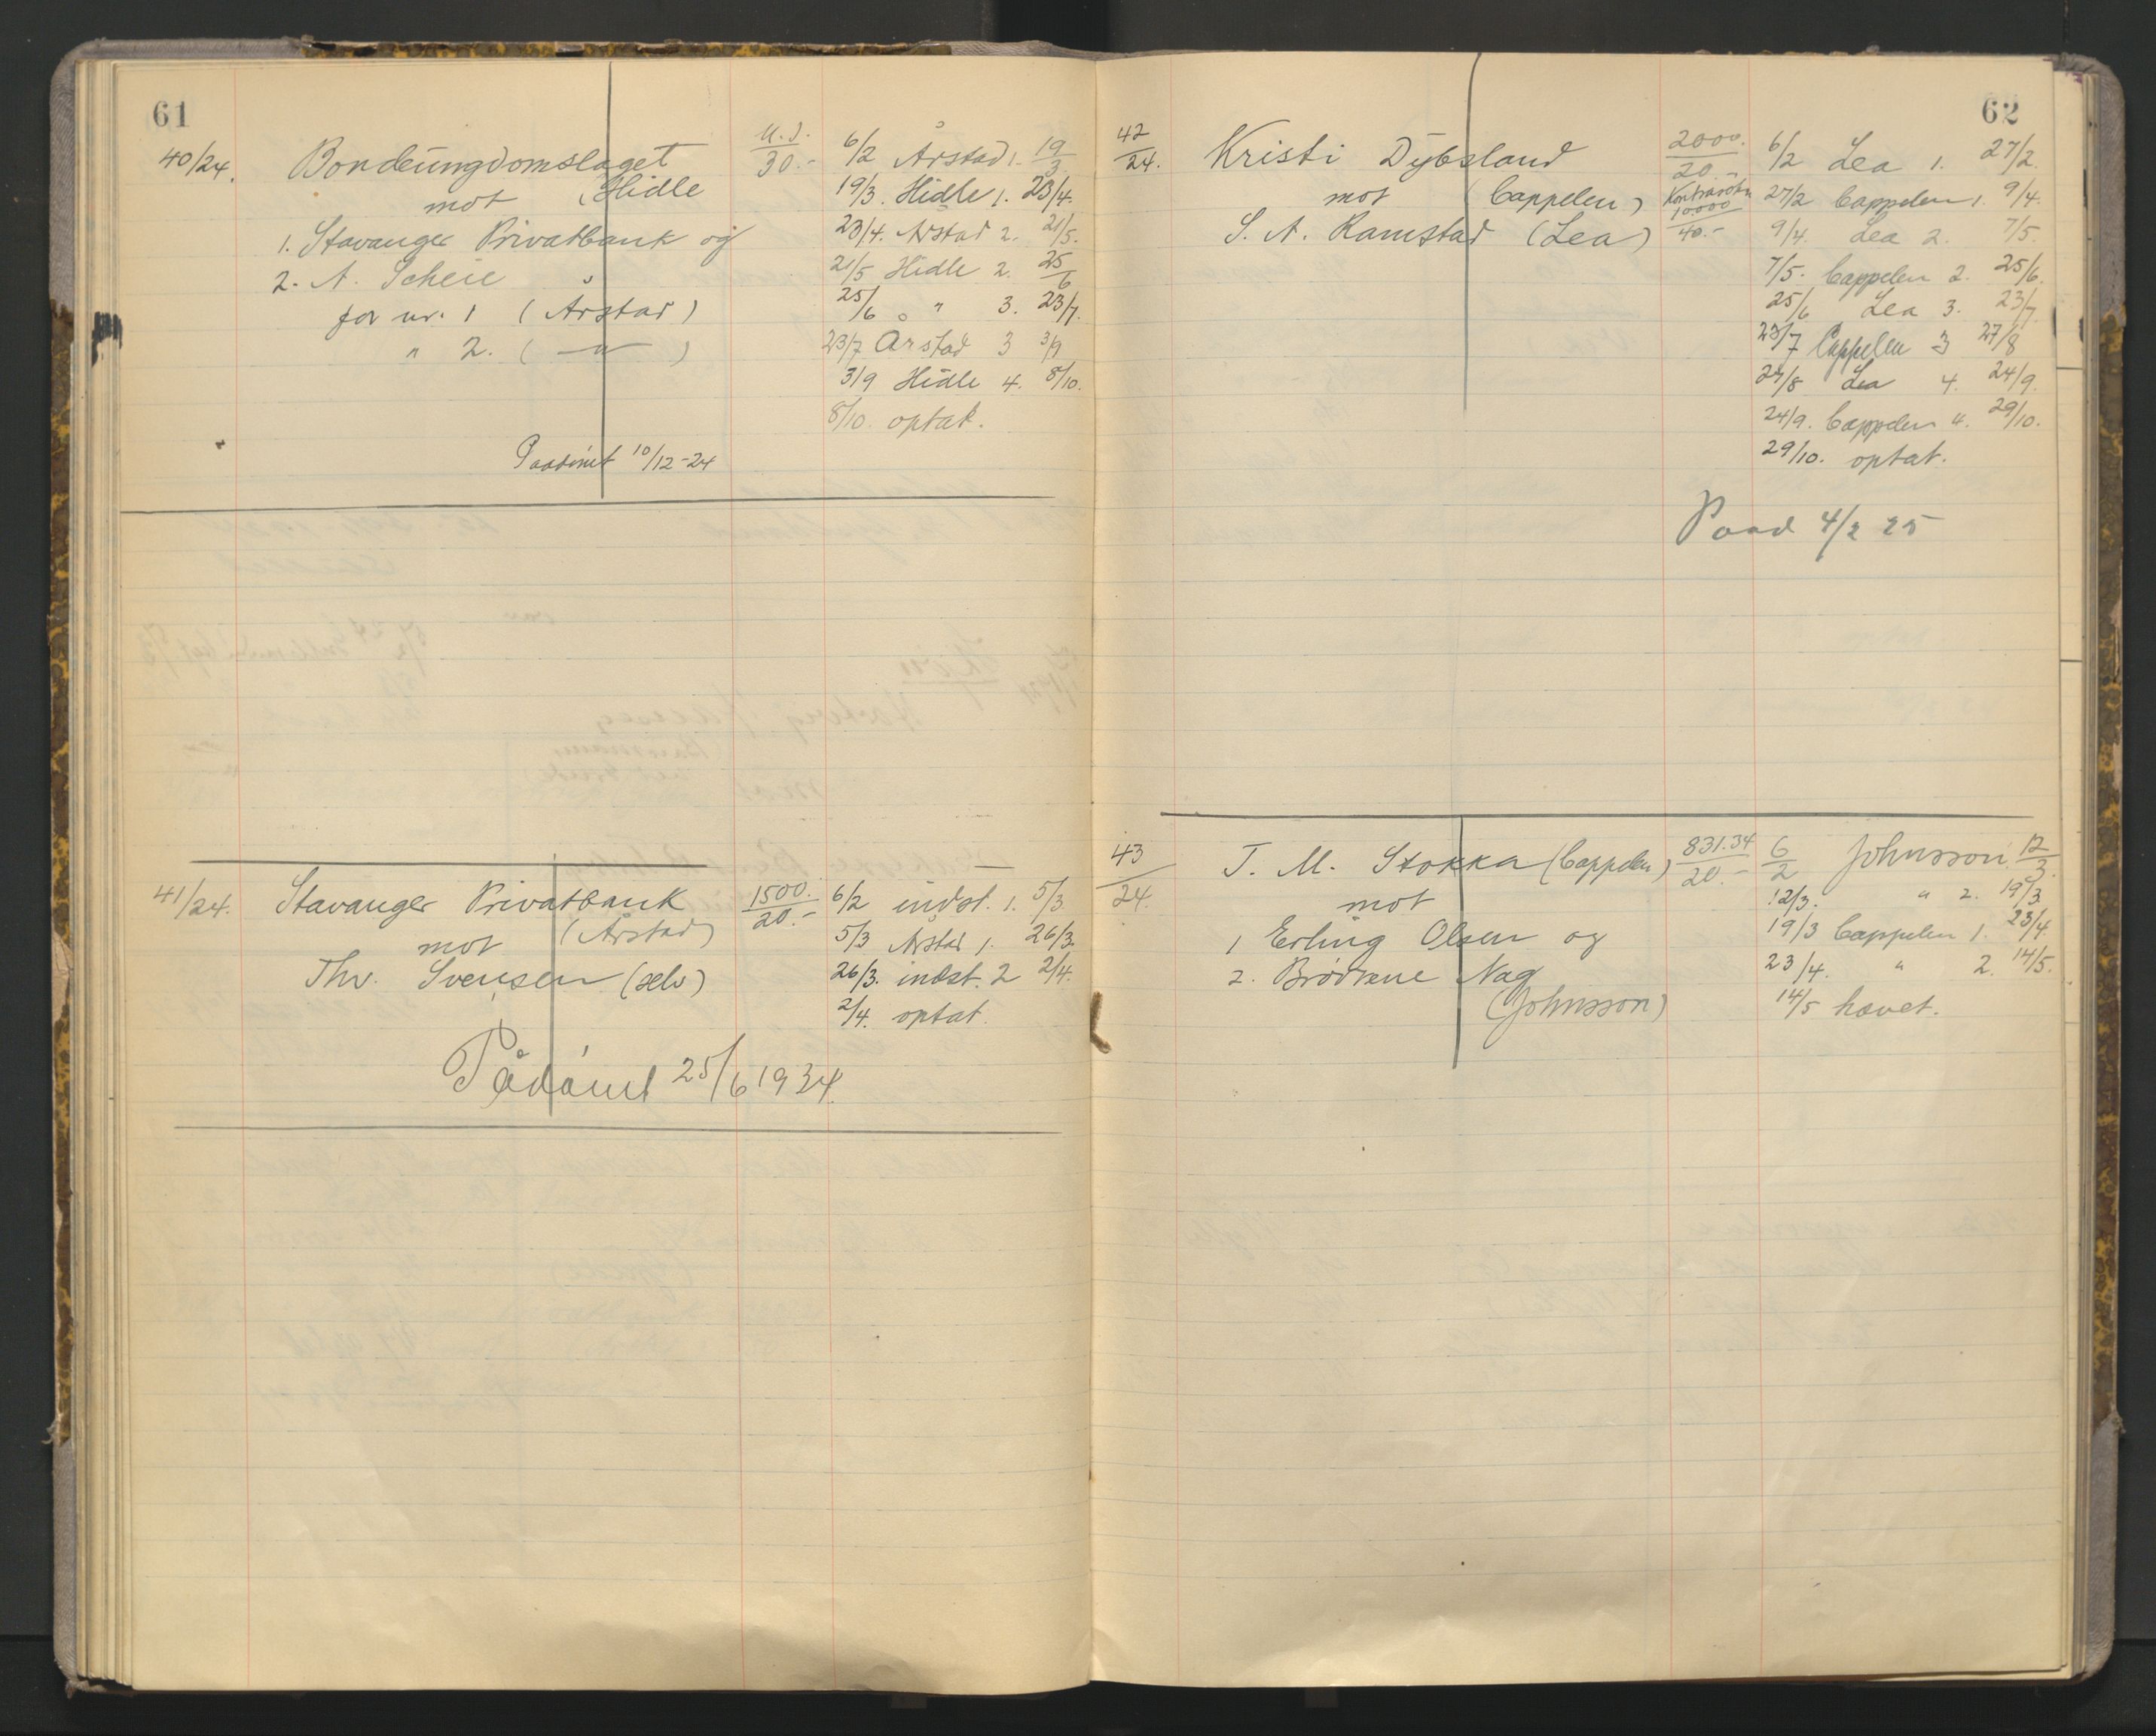 61
40/24. Bondeungdomslaget U.S. 30.- 6/2 Årstad 1. 19/3
mot (Hidle 19/3. Hidle 1. 23/4.
1. Stavanger Privatbank og 23/4. Årstad 2. 21/5.
2. A. Scheie 21/5 Hidle 2. 25/6
for nr. 1 (Årstad) 25/6 " 3. 23/7.
" 2. ( —"— ) 23/7 Årstad 3 3/9
3/9 Hidle 4. 8/10.
8/10. optat.
Paadömt 10/12-24
41/24. Stavanger Privatbank 1500.- 20.- 6/2 indst. 1. 5/3
mot (Årstad) 5/3 Årstad 1. 26/3.
Thv. Svensen (selv) 26/3. indst. 2 2/4.
2/4. optat.
Pådömt 25/6 1934.
62
42/24. Kristi Dybsland 2000.- 20.- 6/2 Lea 1. 27/2.
mot (Cappelen) Kontrasökm 10.000 40.- 27/2 Cappelen 1. 9/4.
S. A. Ramstad (Lea) 9/4. Lea 2. 7/5.
7/5. Cappelen 2. 25/6.
25/6 Lea 3. 23/7.
23/7 Cappelen 3 27/8
27/8 Lea 4. 24/9.
24/9. Cappelen 4. 29/10.
29/10. optat.
Paad 4/2 25
43/24. T. M. Stokka (Cappelen) 831.34 20.- 6/2 Johnsson 12/3.
mot 12/3. " 2. 19/3
1 Erling Olsen og 19/3 Cappelen 1. 23/4.
2. Brödrene Nag 23/4. " 2. 14/5.
(Johnsson) 14/5 hævet.